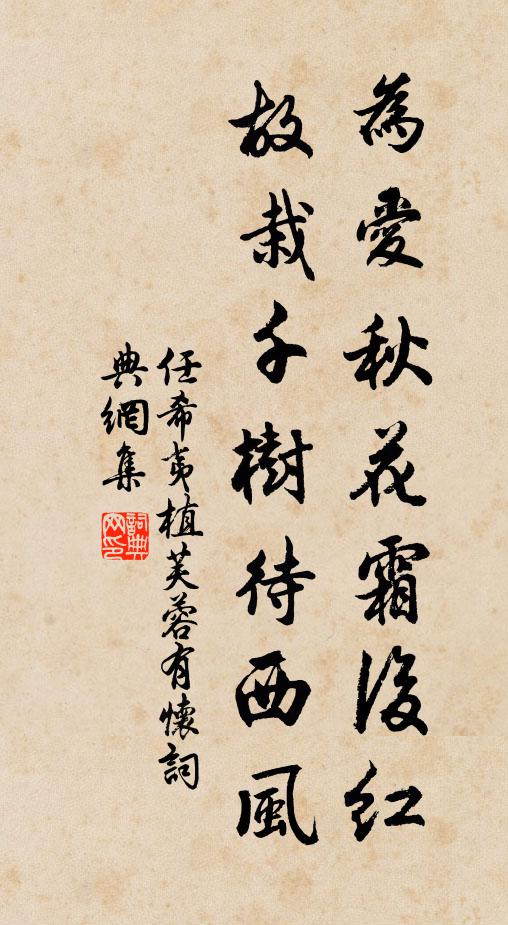 為愛秋花霜後紅
故栽千樹待西風
任希夷植芙蓉有懷詞
典網集
詞典
网印